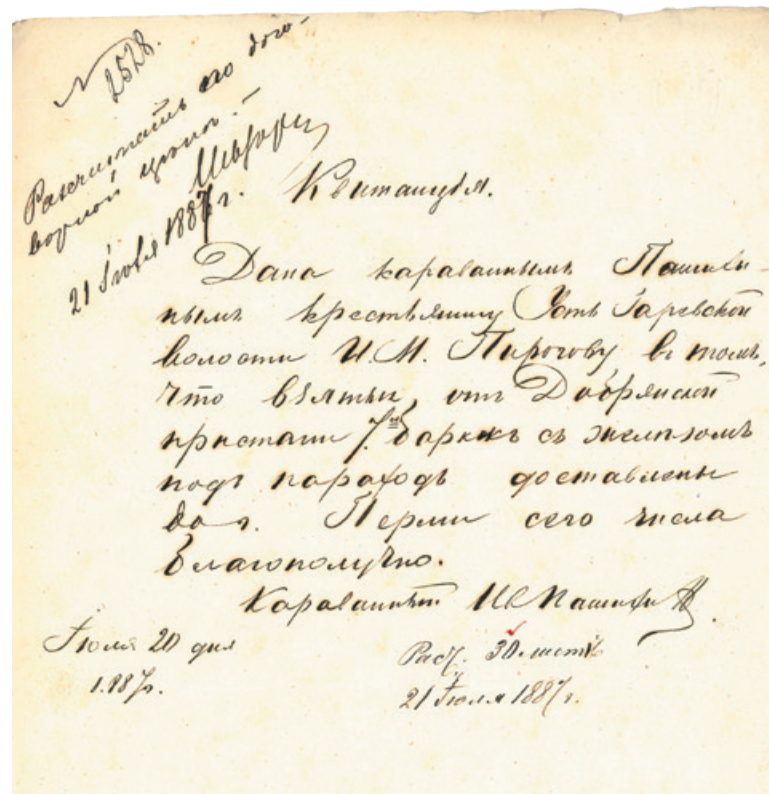 № 2528.
Разсчитать по дого-
ворной цене.
21 Іюля 1887 г.
Квитанція.
Дана караваннымъ Пашихи-
нымъ крестьянину Усть Гаревской
волости И. М. Пирогову въ томъ,
что взятыя отъ Добрянской
пристани 7ᵐⁱ баржъ съ желѣзомъ
подъ пароходъ доставлены
до г. Перми сего числа
благополучно.
Караванный Пашихинъ
Іюля 20 дня
1887 г.
30
21 Іюля 1887 г.